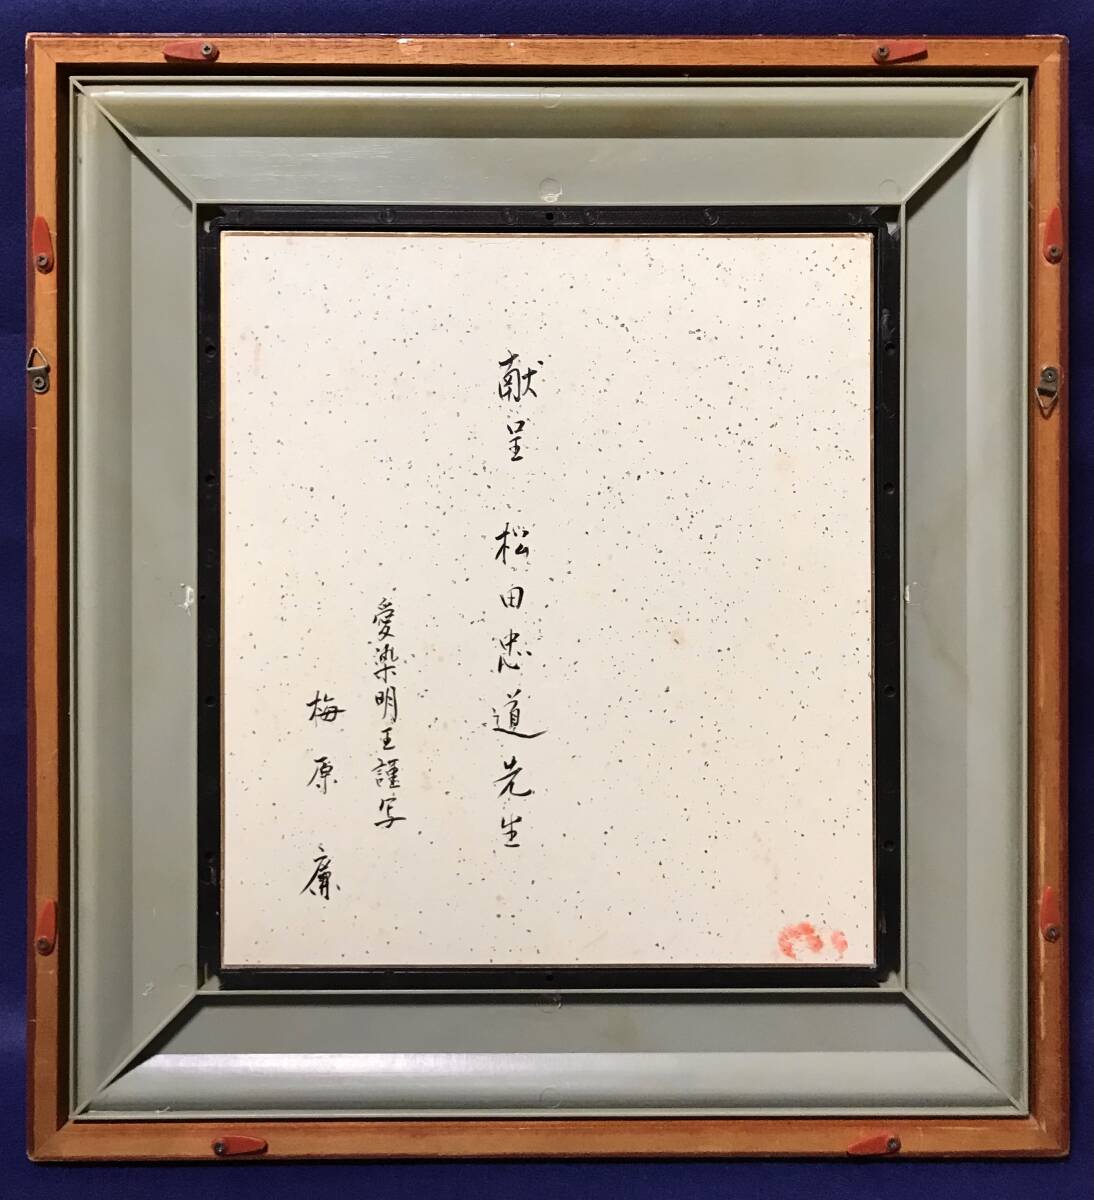 献呈 松田忠道先生
愛染明王謹写
梅原廉